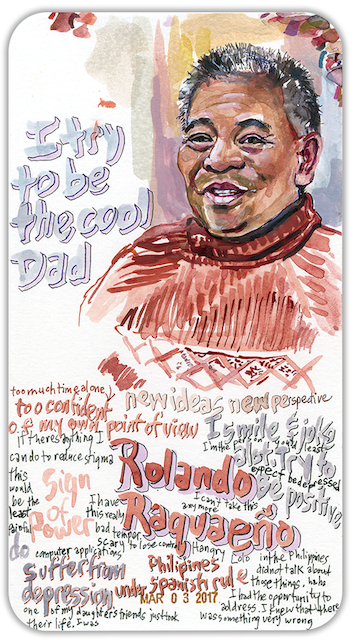 I try
to be
the cool
Dad
too much time alone,
too confident
of my own point of view
new ideas new perspective
if there's anything I
can do to reduce stigma
this
would
be the
least
painful
Sign
of
Power
I smile & joke
I'm the person you'd least
expect to be depressed
a lot. Try to
be positive
Rolando
Raquaeño
I can't take this
any more
I have
this really
bad temper
scary to lose control
Hangry
computer applications
do
suffer from
depression
Philipines
under spanish rule
MAR 0 3 2017
in the Philipines
didn't talk about
those things. haha
I had the opportunity to
address. I knew that there
was something very wrong
one of my daughter's friends just took
their life. I was